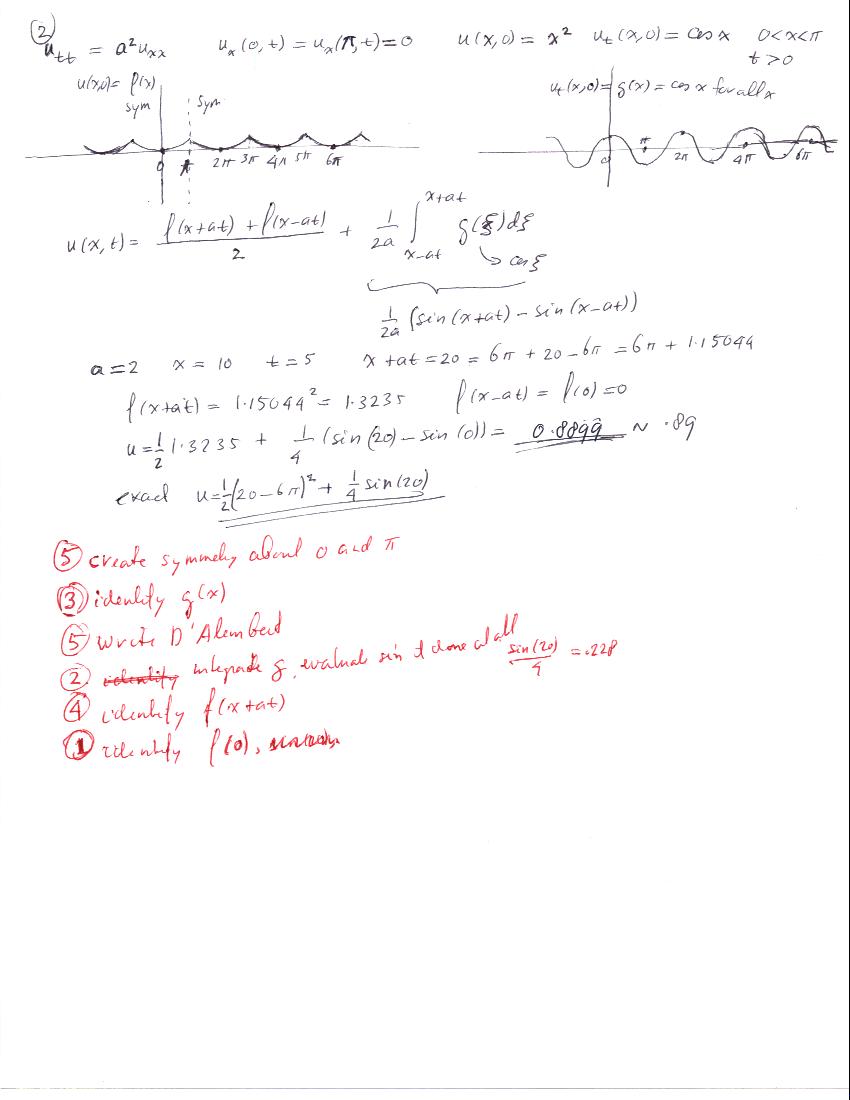 ②
u_tt = a²u_xx   u_x(0,t) = u_x(π,t) = 0   u(x,0) = x²   u_t(x,0) = cos x   0<x<π
t>0
u(x,0)= f(x)
sym   sym
u_t(x,0) = g(x) = cos x for all x
0   π   2π   3π   4π   5π   6π
0   π   2π   4π   6π
u(x,t) = (f(x+at) + f(x-at))/2 + 1/2a ∫_{x-at}^{x+at} g(ξ)dξ
↳ cos ξ
1/2a (sin(x+at) - sin(x-at))
a=2   x = 10   t=5   x+at = 20 = 6π + 20-6π = 6π + 1.15044
f(x+at) = 1.15044² = 1.3235   f(x-at) = f(0) = 0
u = 1/2 1.3235 + 1/4 (sin(20) - sin(0)) = 0.8899 ~ .89
exact   u = 1/2(20-6π)² + 1/4 sin(20)
⑤ create symmetry about 0 and π
③ identify g(x)
⑤ write D'Alembert
② identify integrate g, evaluate sin if done at all   sin(20)/4 = .228
④ identify f(x+at)
① identify f(0),